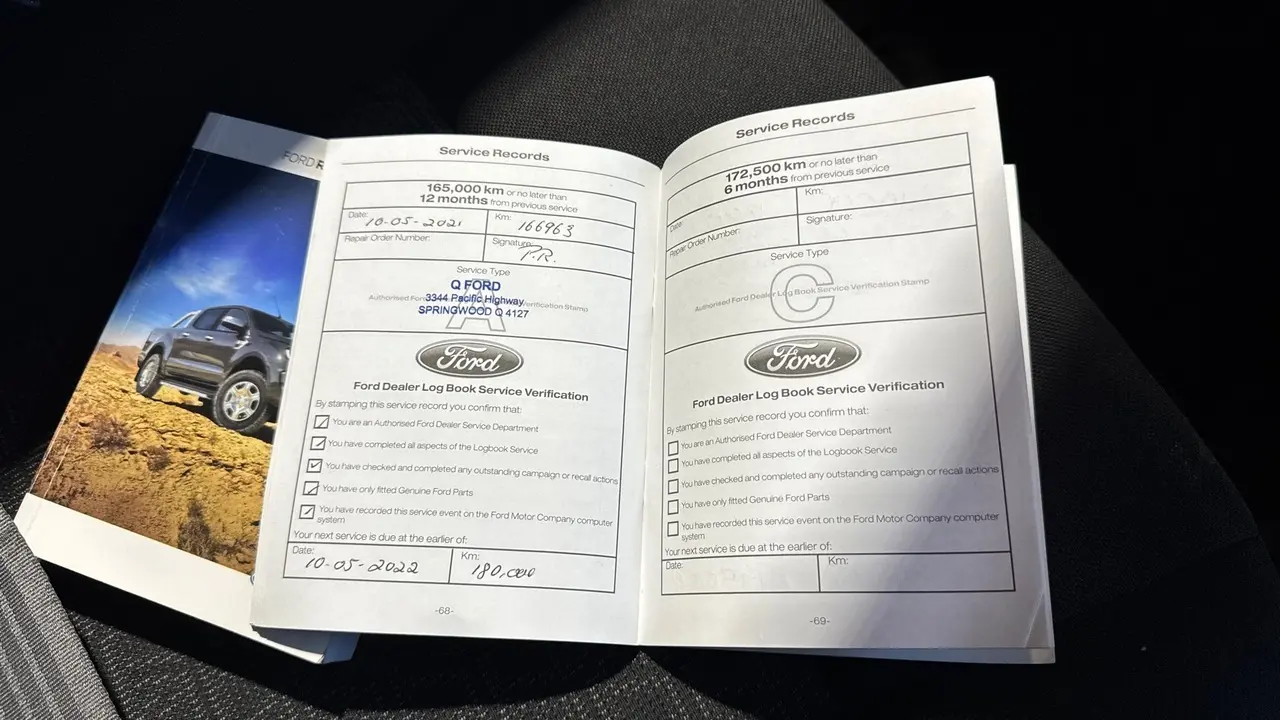 FORD R
Service Records
165,000 km or no later than
12 months from previous service
Date: 10-05-2021 Km: 166963
Repair Order Number: Signature: P.R.
Service Type
A
Authorised Ford Verification Stamp
Q FORD
3344 Pacific Highway
SPRINGWOOD Q 4127
Ford
Ford Dealer Log Book Service Verification
By stamping this service record you confirm that:
You are an Authorised Ford Dealer Service Department
You have completed all aspects of the Logbook Service
You have checked and completed any outstanding campaign or recall actions
You have only fitted Genuine Ford Parts
You have recorded this service event on the Ford Motor Company computer
system
Your next service is due at the earlier of:
Date: 10-05-2022 Km: 180,000
-68-
Service Records
172,500 km or no later than
6 months from previous service
Date: Km:
Repair Order Number: Signature:
Service Type
C
Authorised Ford Dealer Log Book Service Verification Stamp
Ford
Ford Dealer Log Book Service Verification
By stamping this service record you confirm that:
You are an Authorised Ford Dealer Service Department
You have completed all aspects of the Logbook Service
You have checked and completed any outstanding campaign or recall actions
You have only fitted Genuine Ford Parts
You have recorded this service event on the Ford Motor Company computer
system
Your next service is due at the earlier of:
Date: Km:
-69-